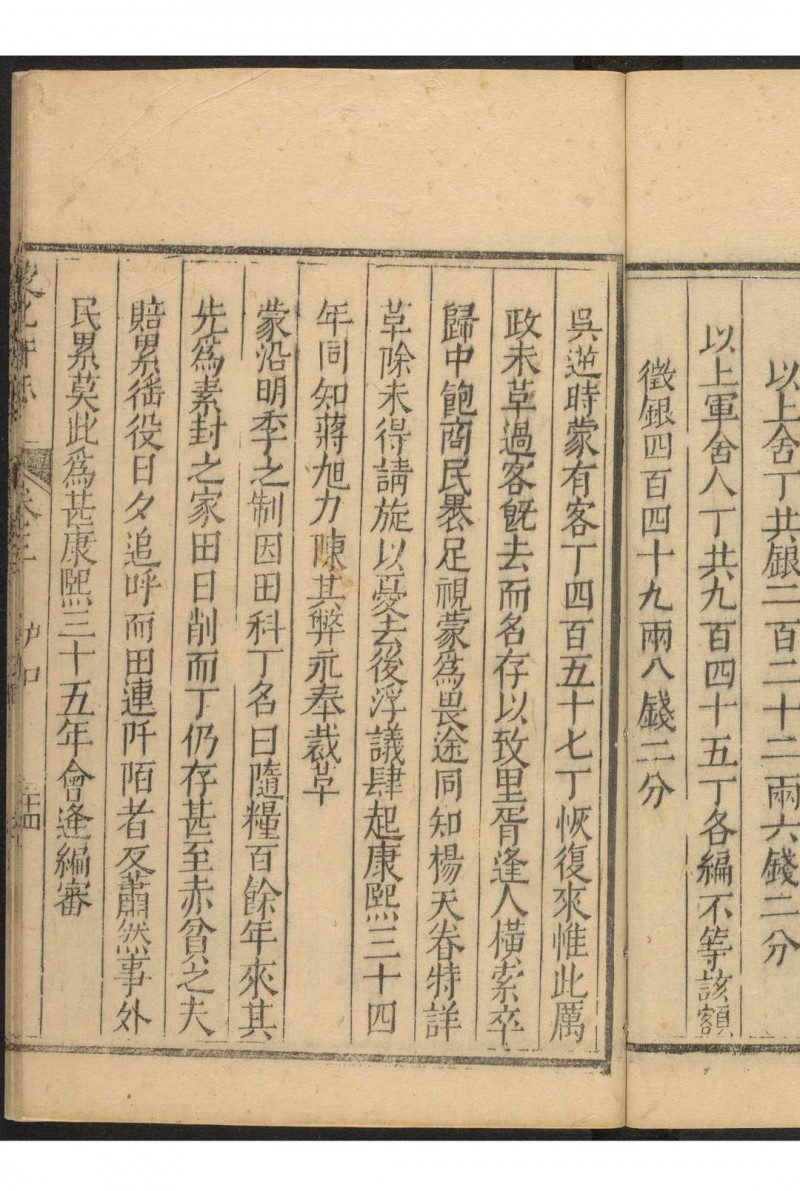 以上舍丁共銀二百二十二兩六錢二分
以上軍舍人丁共九百四十五丁各編不等該額
徵銀四百四十九兩八錢二分
吳逆時蒙有客丁四百五十七丁恢復來惟此厲
政未革過客既去而名存以致里胥逢人橫索卒
歸中飽商民裹足視蒙為畏途同知楊天眷特詳
革除未得請旋以憂去後浮議肆起康熙三十四
年同知蔣旭力陳其弊永奉裁革
蒙沿明季之制因田科丁名曰隨糧百餘年來其
先為素封之家田日削而丁仍存甚至赤貧之夫
賠累徭役日夕追呼而田連阡陌者反蕭然事外
民累莫此為甚康熙三十五年會逢編審
蒙化府志 卷三 戶口 二十四